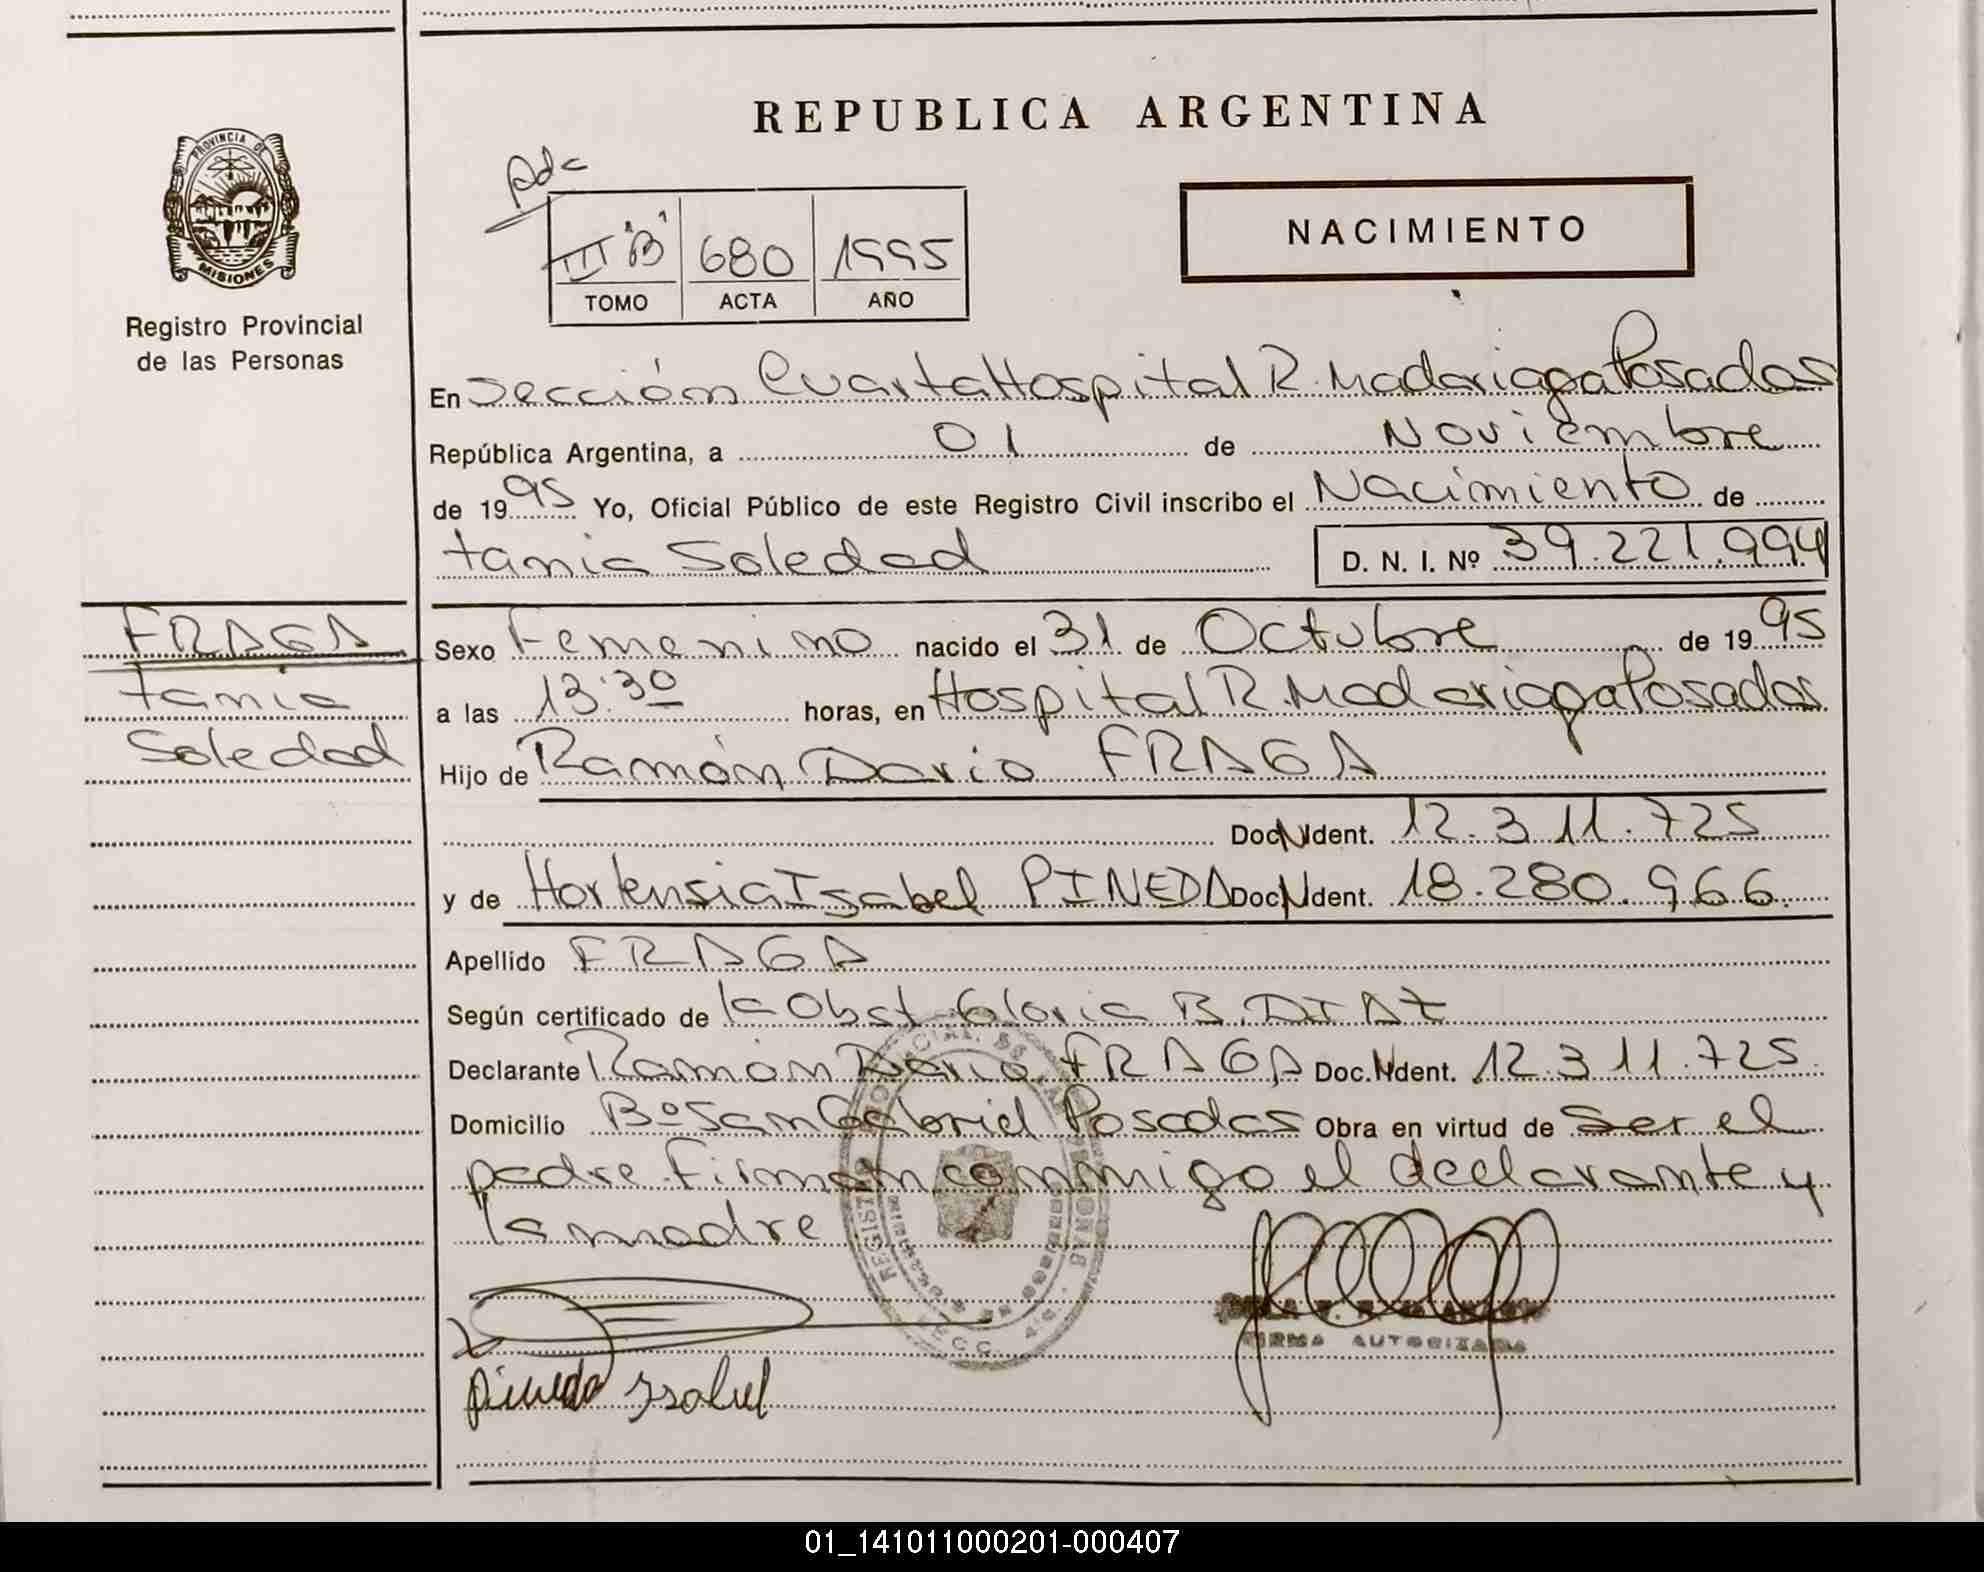 REPUBLICA ARGENTINA
PROVINCIA DE
MISIONES
Registro Provincial
de las Personas
Adc
III "B" 680 1995
TOMO ACTA AÑO
NACIMIENTO
En Sección Cuarta Hospital R. Madariaga Posadas
República Argentina, a 01 de Noviembre
de 1995 Yo, Oficial Público de este Registro Civil inscribo el Nacimiento de
tania Soledad D. N. I. Nº 39.221.994
FRAGA
tania
Soledad
Sexo Femenino nacido el 31 de Octubre de 1995
a las 13:30 horas, en Hospital R. Madariaga Posadas
Hijo de Ramón Dario FRAGA
Doc N Ident. 12.311.725
y de Hortensia Isabel PINEDA Doc N Ident. 18.280.966
Apellido FRAGA
Según certificado de la Obst. Gloria B. DIAZ
Declarante Ramón Dario FRAGA Doc. N Ident. 12.311.725
Domicilio Bº San Gabriel Posadas Obra en virtud de ser el
padre. Firman conmigo el declarante y
la madre
FIRMA AUTORIZADA
Pineda Isabel
01_141011000201-000407